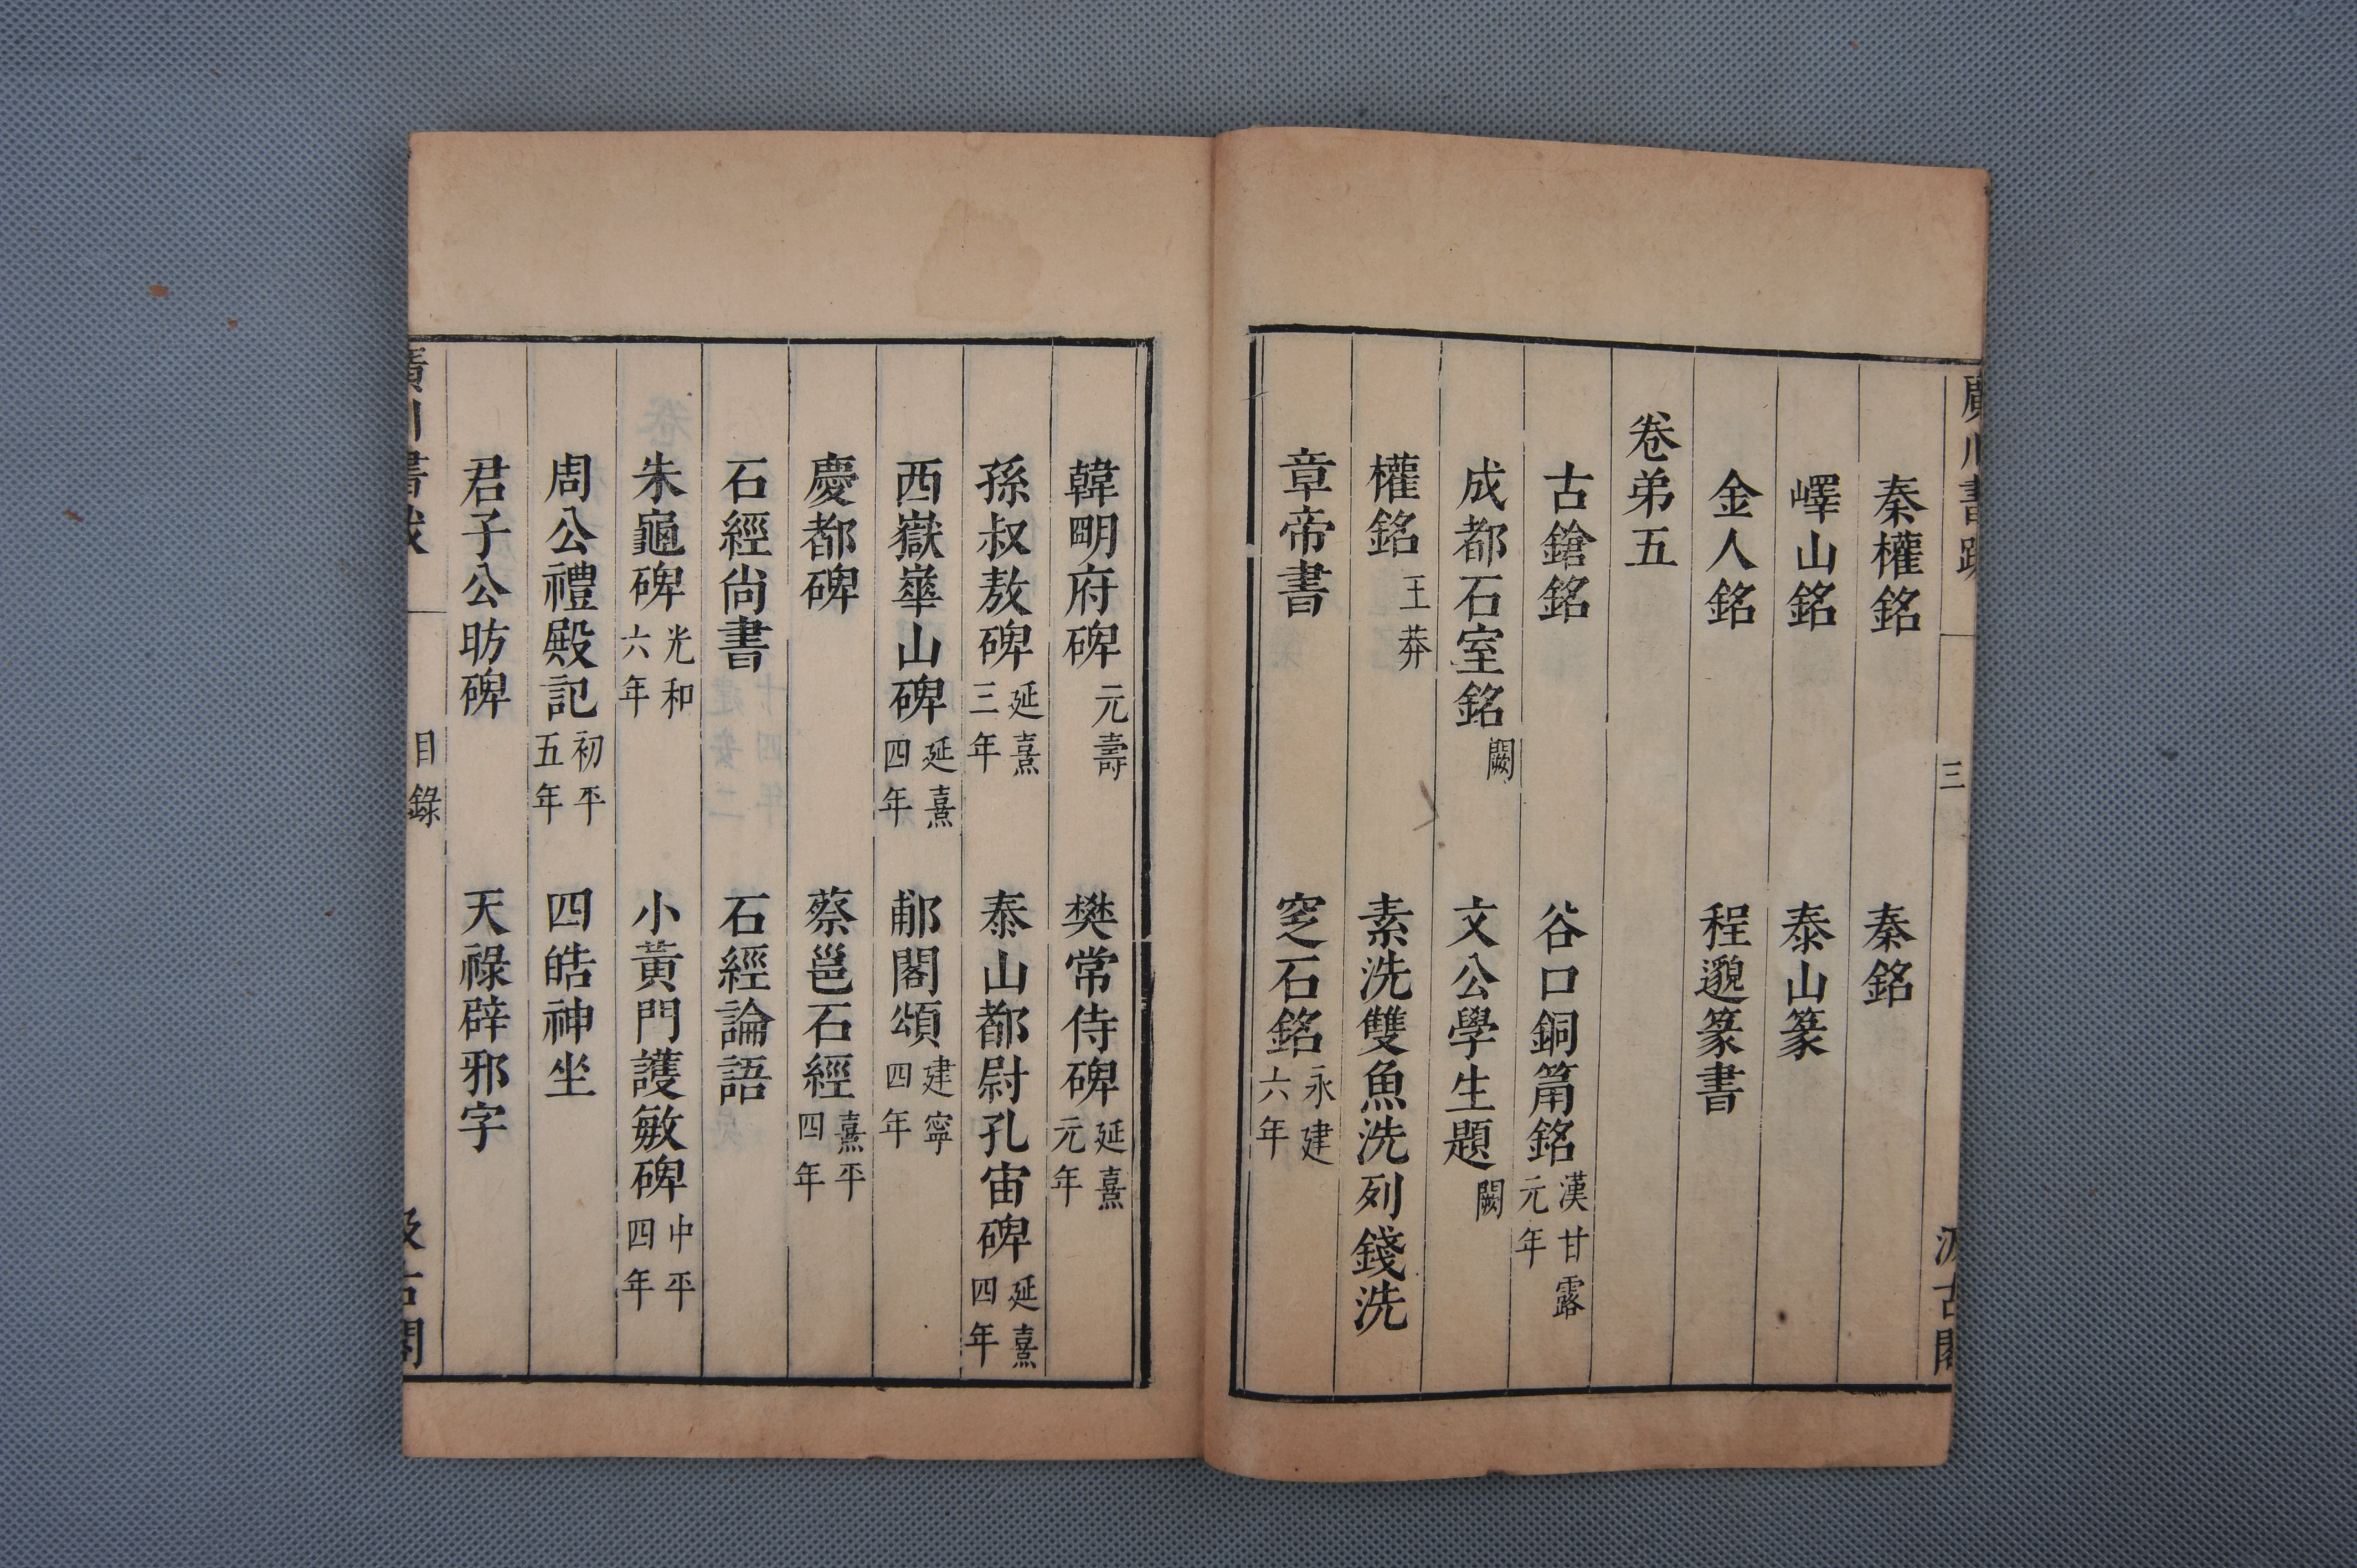 廣川書跋
三
汲古閣
秦權銘　秦銘
嶧山銘　泰山篆
金人銘　程邈篆書
卷弟五
古鎗銘　谷口銅甬銘 漢甘露元年
成都石室銘 闕　文公學生題 闕
權銘 王莽　素洗雙魚洗列錢洗
章帝書　窆石銘 永建六年
韓明府碑 元壽　樊常侍碑 延熹元年
孫叔敖碑 延熹三年　泰山都尉孔宙碑 延熹四年
西嶽崋山碑 延熹四年　郙閣頌 建寧四年
慶都碑　蔡邕石經 熹平四年
石經尚書　石經論語
朱龜碑 光和六年　小黃門護敏碑 中平四年
周公禮殿記 初平五年　四皓神坐
君子公昉碑　天祿辟邪字
廣川書跋
目錄
汲古閣